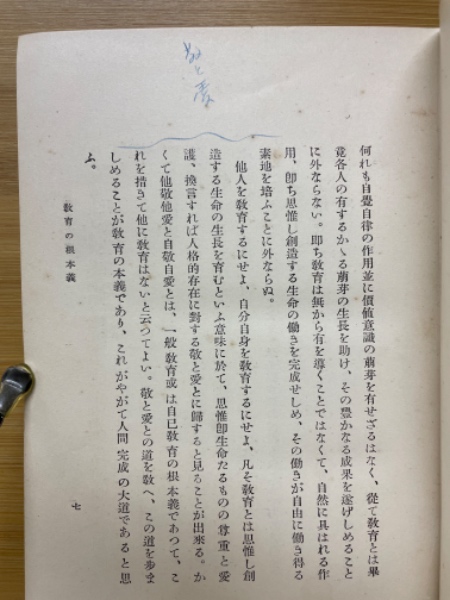 敬と愛
何れも自覺自律の作用並に價値意識の萠芽を有せざるはなく、從て敎育とは畢
竟各人の有するかゝる萠芽の生長を助け、その豊かなる成果を遂げしめること
に外ならない。卽ち敎育は無から有を導くことではなくて、自然に具はれる作
用、卽ち思惟し創造する生命の働きを完成せしめ、その働きが自由に働き得る
素地を培ふことに外ならぬ。
他人を敎育するにせよ、自分自身を敎育するにせよ、凡そ敎育とは思惟し創
造する生命の生長を育むといふ意味に於て、思惟卽生命たるものの尊重と愛
護、換言すれば人格的存在に對する敬と愛とに歸すると見ることが出來る。か
くて他敬他愛と自敬自愛とは、一般敎育或は自己敎育の根本義であつて、こ
れを措きて他に敎育はないと云つてよい。敬と愛との道を敎へ、この道を歩ま
しめることが敎育の本義であり、これがやがて人間完成の大道であると思
ふ。
敎育の根本義
七